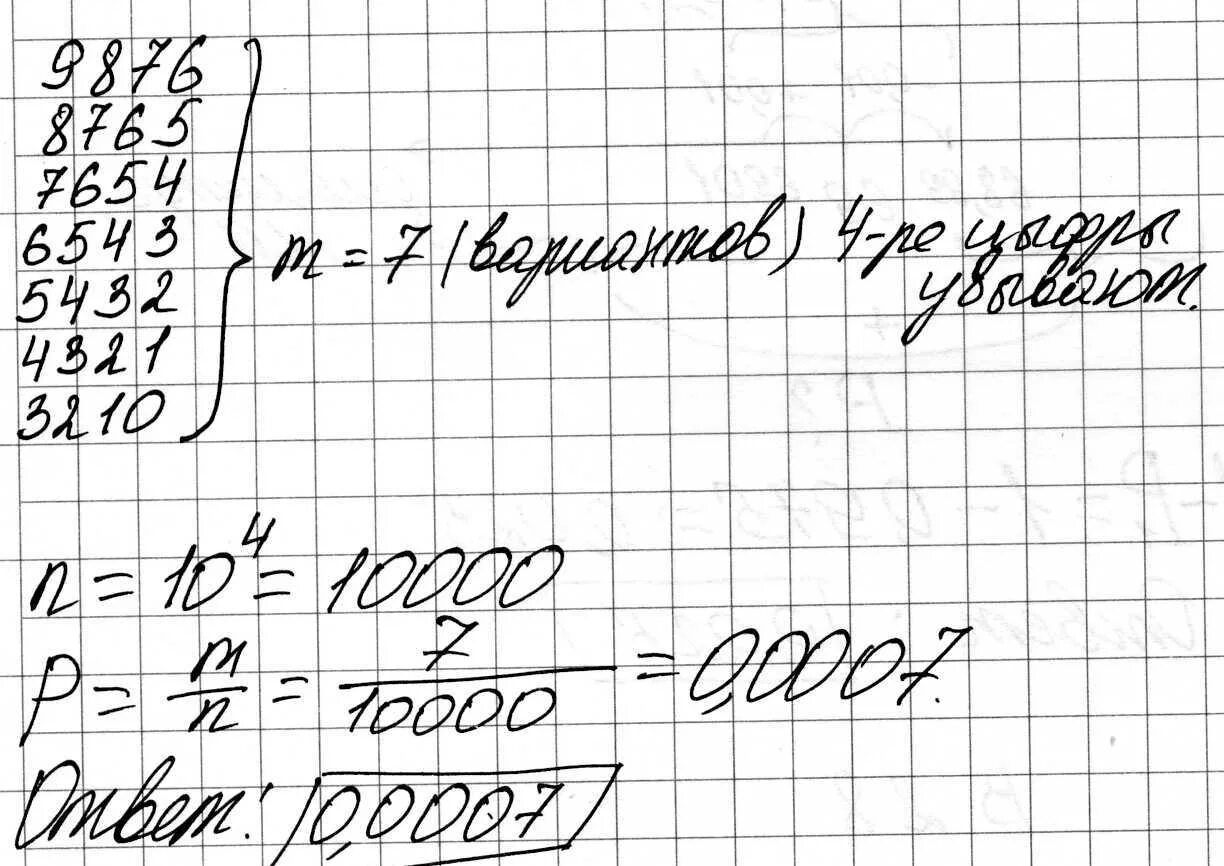 9876
8765
7654
6543
5432
4321
3210
m = 7 (вариантов) 4-ре цыфры
убывают.
n = 10⁴ = 10000
P = m/n = 7/10000 = 0,0007.
Ответ: 0,0007